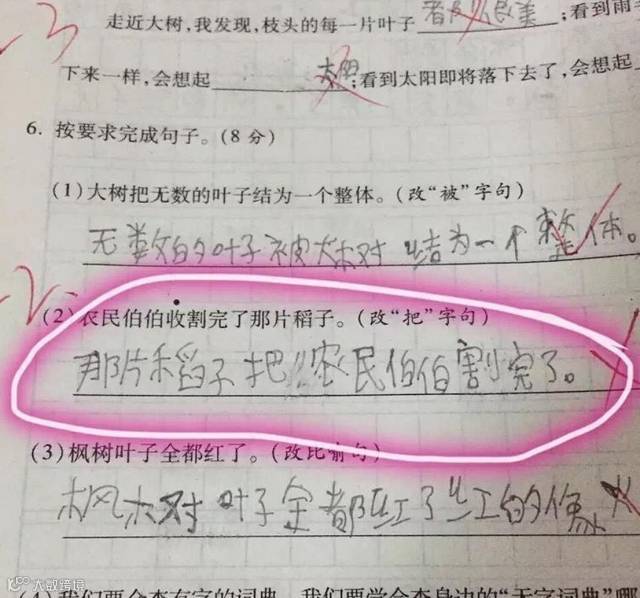 走近大树,我发现,枝头的每一片叶子 ;看到雨
下来一样,会想起 太阳 ;看到太阳即将落下去了,会想起
6. 按要求完成句子。(8分)
(1)大树把无数的叶子结为一个整体。(改“被”字句)
无数的叶子被大树 结为一个整体。
(2)农民伯伯收割完了那片稻子。(改“把”字句)
那片稻子把农民伯伯割完了。
(3)枫树叶子全都红了。(改比喻句)
枫树叶子全都红了红的像火
我们要会查有字的词典,我们要学会查身边的“无字词典”哪
大数跨境